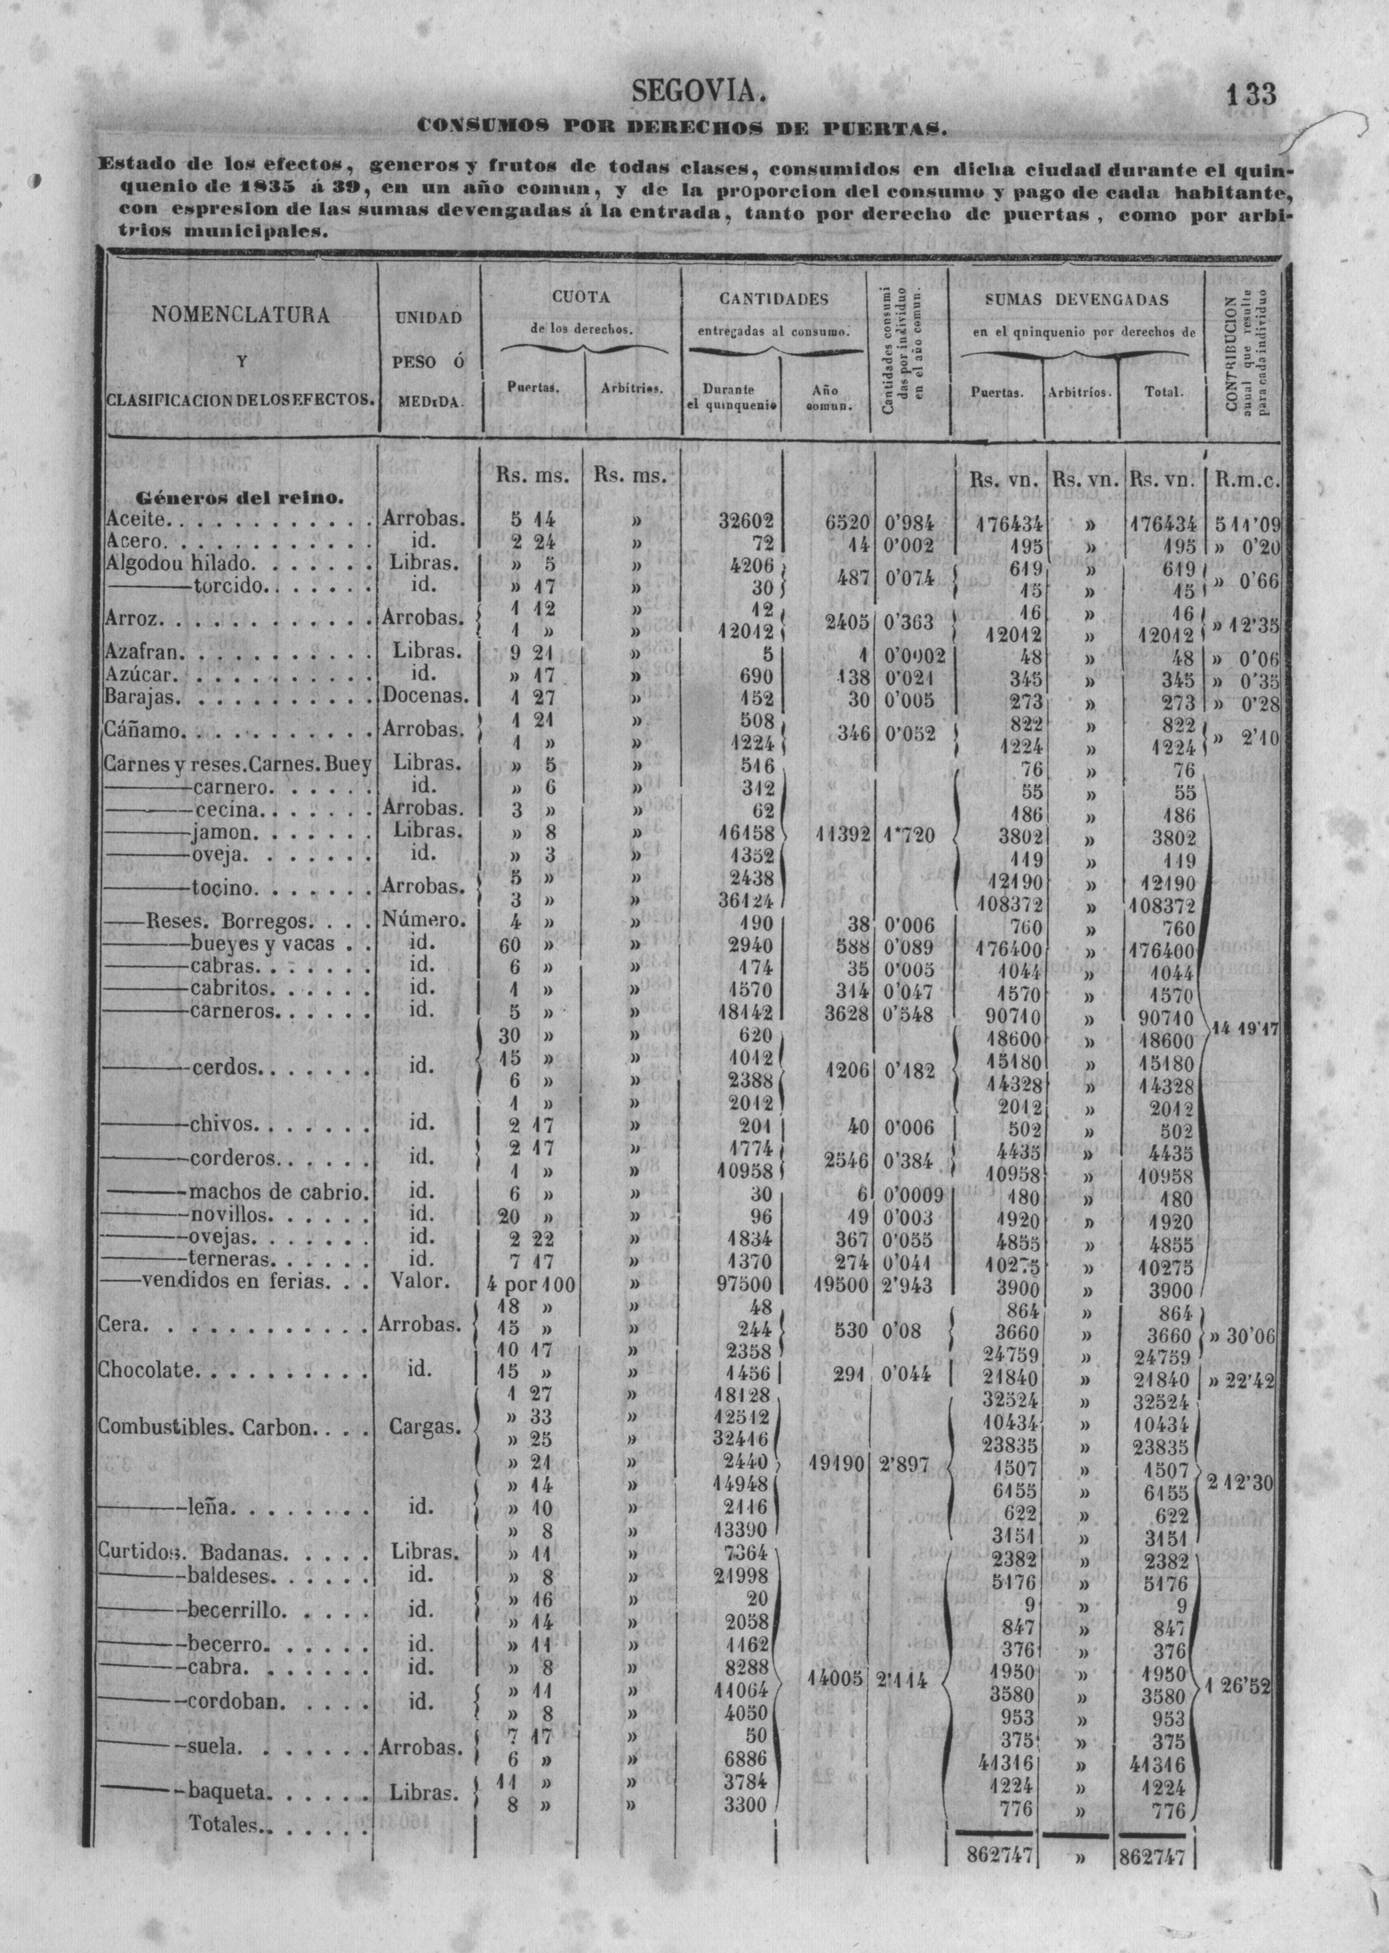 SEGOVIA.
133
CONSUMOS POR DERECHOS DE PUERTAS.
Estado de los efectos, generos y frutos de todas clases, consumidos en dicha ciudad durante el quin-
quenio de 1835 á 39, en un año comun, y de la proporcion del consumo y pago de cada habitante,
con espresion de las sumas devengadas á la entrada, tanto por derecho de puertas, como por arbi-
trios municipales.
NOMENCLATURA
Y
CLASIFICACION DE LOS EFECTOS.
UNIDAD
PESO Ó
MEDIDA.
CUOTA
de los derechos.
Puertas. Arbitrios.
CANTIDADES
entregadas al consumo.
Durante
el quinquenio
Año
comun.
Cantidades consumi
das por individuo
en el año comun.
SUMAS DEVENGADAS
en el qninquenio por derechos de
Puertas. Arbitrios. Total.
CONTRIBUCION
anual que resulte
para cada individuo
Rs. ms. Rs. ms. Rs. vn. Rs. vn. Rs. vn. R.m.c.
Géneros del reino.
Aceite. Arrobas. 5 14 » 32602 6520 0'984 176434 » 176434 5 11'09
Acero. id. 2 24 » 72 14 0'002 195 » 195 » 0'20
Algodou hilado. Libras. » 5 » 4206 487 0'074 619 » 619 » 0'66
torcido. id. » 17 » 30 15 » 15
Arroz. Arrobas. 1 12 » 12 2405 0'363 16 » 16 » 12'35
1 » » 12012 12012 » 12012
Azafran. Libras. 9 21 » 5 1 0'0002 48 » 48 » 0'06
Azúcar. id. » 17 » 690 138 0'021 345 » 345 » 0'35
Barajas. Docenas. 1 27 » 152 30 0'005 273 » 273 » 0'28
Cáñamo. Arrobas. 1 21 » 508 346 0'052 822 » 822 » 2'10
1 » » 1224 1224 » 1224
Carnes y reses. Carnes. Buey Libras. » 5 » 516 76 » 76
carnero. id. » 6 » 312 55 » 55
cecina. Arrobas. 3 » » 62 186 » 186
jamon. Libras. » 8 » 16158 11392 1'720 3802 » 3802
oveja. id. » 3 » 1352 119 » 119
tocino. Arrobas. 5 » » 2438 12190 » 12190
3 » » 36124 108372 » 108372
Reses. Borregos. Número. 4 » » 190 38 0'006 760 » 760
bueyes y vacas id. 60 » » 2940 588 0'089 176400 » 176400
cabras. id. 6 » » 174 35 0'005 1044 » 1044
cabritos. id. 1 » » 1570 314 0'047 1570 » 1570
carneros. id. 5 » » 18142 3628 0'548 90710 » 90710 14 19'17
30 » » 620 18600 » 18600
cerdos. id. 15 » » 1012 1206 0'182 15180 » 15180
6 » » 2388 14328 » 14328
1 » » 2012 2012 » 2012
chivos. id. 2 17 » 201 40 0'006 502 » 502
corderos. id. 2 17 » 1774 2546 0'384 4435 » 4435
1 » » 10958 10958 » 10958
machos de cabrio. id. 6 » » 30 6 0'0009 180 » 180
novillos. id. 20 » » 96 19 0'003 1920 » 1920
ovejas. id. 2 22 » 1834 367 0'055 4855 » 4855
terneras. id. 7 17 » 1370 274 0'041 10275 » 10275
vendidos en ferias. Valor. 4 por 100 » 97500 19500 2'943 3900 » 3900
18 » » 48 864 » 864
Cera. Arrobas. 15 » » 244 530 0'08 3660 » 3660 » 30'06
10 17 » 2358 24759 » 24759
Chocolate. id. 15 » » 1456 291 0'044 21840 » 21840 » 22'42
1 27 » 18128 32524 » 32524
Combustibles. Carbon. Cargas. » 33 » 12512 10434 » 10434
» 25 » 32416 23835 » 23835
» 21 » 2440 19190 2'897 1507 » 1507 2 12'30
» 14 » 14948 6155 » 6155
leña. id. » 10 » 2116 622 » 622
» 8 » 13390 3151 » 3151
Curtidos. Badanas. Libras. » 11 » 7364 2382 » 2382
baldeses. id. » 8 » 21998 5176 » 5176
becerrillo. id. » 16 » 20 9 » 9
» 14 » 2058 847 » 847
becerro. id. » 11 » 1162 376 » 376
cabra. id. » 8 » 8288 14005 2'114 1950 » 1950 1 26'52
cordoban. id. » 11 » 11064 3580 » 3580
» 8 » 4050 953 » 953
suela. Arrobas. 7 17 » 50 375 » 375
6 » » 6886 41316 » 41316
baqueta. Libras. 11 » » 3784 1224 » 1224
8 » » 3300 776 » 776
Totales.
862747 » 862747